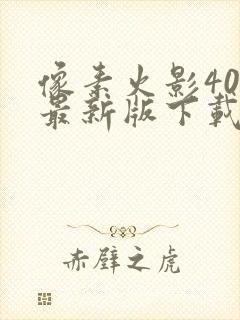 像素火影40
最新版下载
赤壁之虎